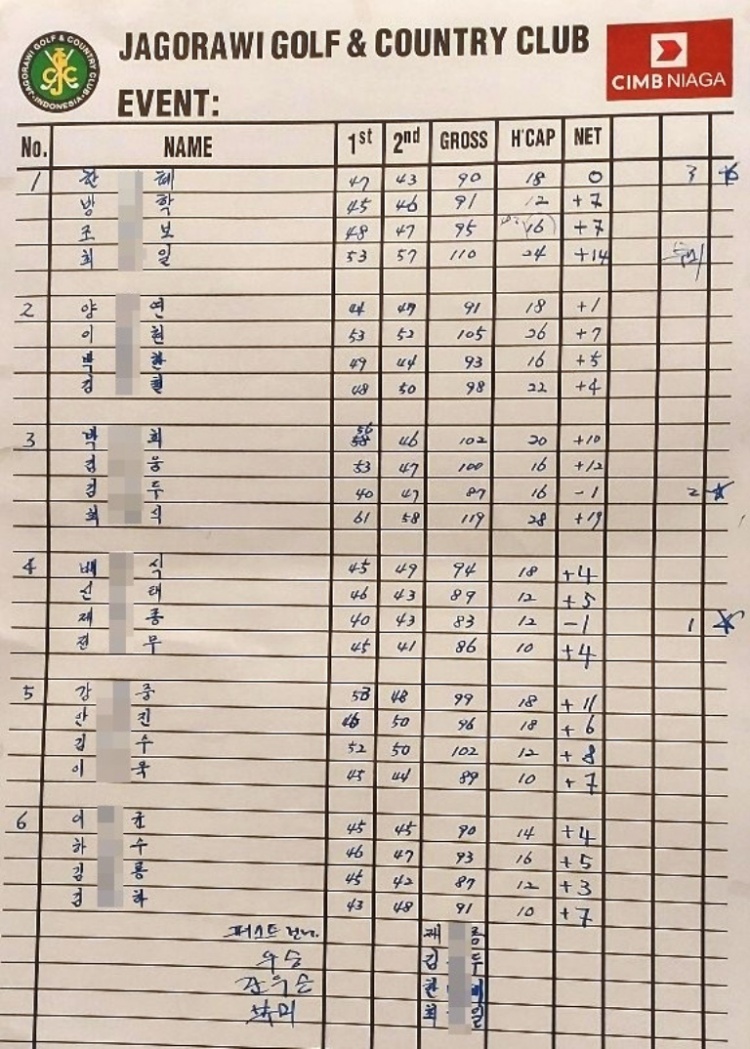 JAGORAWI GOLF & COUNTRY CLUB
JAGORAWI GOLF & COUNTRY CLUB INDONESIA
CIMB NIAGA
EVENT:
No. NAME 1st 2nd GROSS H'CAP NET
1 한 혜 47 43 90 18 0 3
방 학 45 46 91 12 +7
조 보 48 47 95 16 +7
최 일 53 57 110 24 +14
2 양 연 44 47 91 18 +1
이 현 53 52 105 26 +7
박 환 49 44 93 16 +5
김 철 48 50 98 22 +4
3 박 희 56 46 102 20 +10
김 웅 53 47 100 16 +12
김 두 40 47 87 16 -1 2
최 식 61 58 119 28 +19
4 배 식 45 49 94 18 +4
신 태 46 43 89 12 +5
채 종 40 43 83 12 -1 1
전 무 45 41 86 10 +4
5 강 중 53 48 99 18 +11
안 진 46 50 96 18 +6
김 수 52 50 102 12 +8
이 욱 45 44 89 10 +7
6 이 균 45 45 90 14 +4
하 수 46 47 93 16 +5
김 룡 45 42 87 12 +3
김 하 43 48 91 10 +7
채 종
우승 김 두
준우승 한 혜
최 일